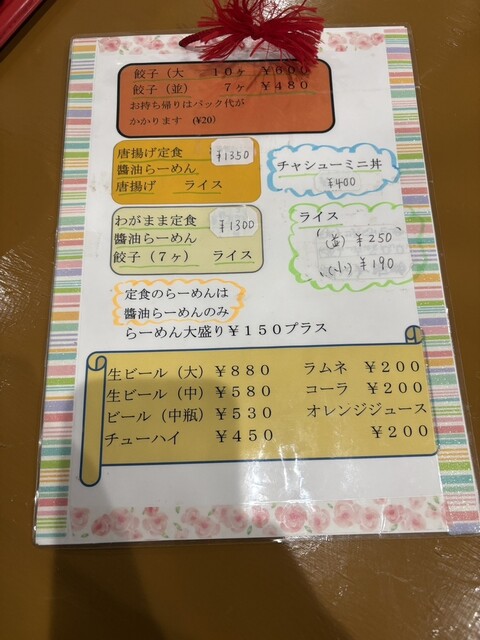 餃子（大　１０ヶ　￥６００
餃子（並）　７ヶ　￥４８０
お持ち帰りはパック代が
かかります　(¥20)
唐揚げ定食　¥1350
醬油らーめん
唐揚げ　ライス
チャシューミニ丼
¥400
わがまま定食　¥1300
醬油らーめん
餃子（７ヶ）　ライス
ライス
(並) ¥250
(小) ¥190
定食のらーめんは
醬油らーめんのみ
らーめん大盛り￥１５０プラス
生ビール（大）￥８８０
生ビール（中）￥５８０
ビール（中瓶）￥５３０
チューハイ　￥４５０
ラムネ　￥２００
コーラ　￥２００
オレンジジュース
￥２００